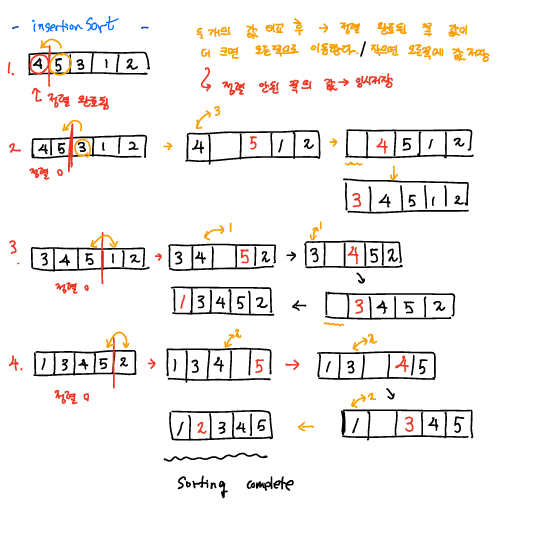 - insertion Sort -
두개의 값 비교 후 → 정렬 완료된 쪽 값이
더 크면 오른쪽으로 이동한다. / 작으면 오른쪽에 값 저장
정렬 안된 쪽의 값 → 임시저장
1. 4 5 3 1 2
↑ 정렬 완료됨
3
2. 4 5 3 1 2 → 4 5 1 2 → 4 5 1 2
정렬 o
3 4 5 1 2
1 1
3. 3 4 5 1 2 → 3 4 5 2 → 3 4 5 2
정렬 o
1 3 4 5 2 ← 3 4 5 2
2 2
4. 1 3 4 5 2 → 1 3 4 5 → 1 3 4 5
정렬 o
2
1 2 3 4 5 ← 1 3 4 5
Sorting complete